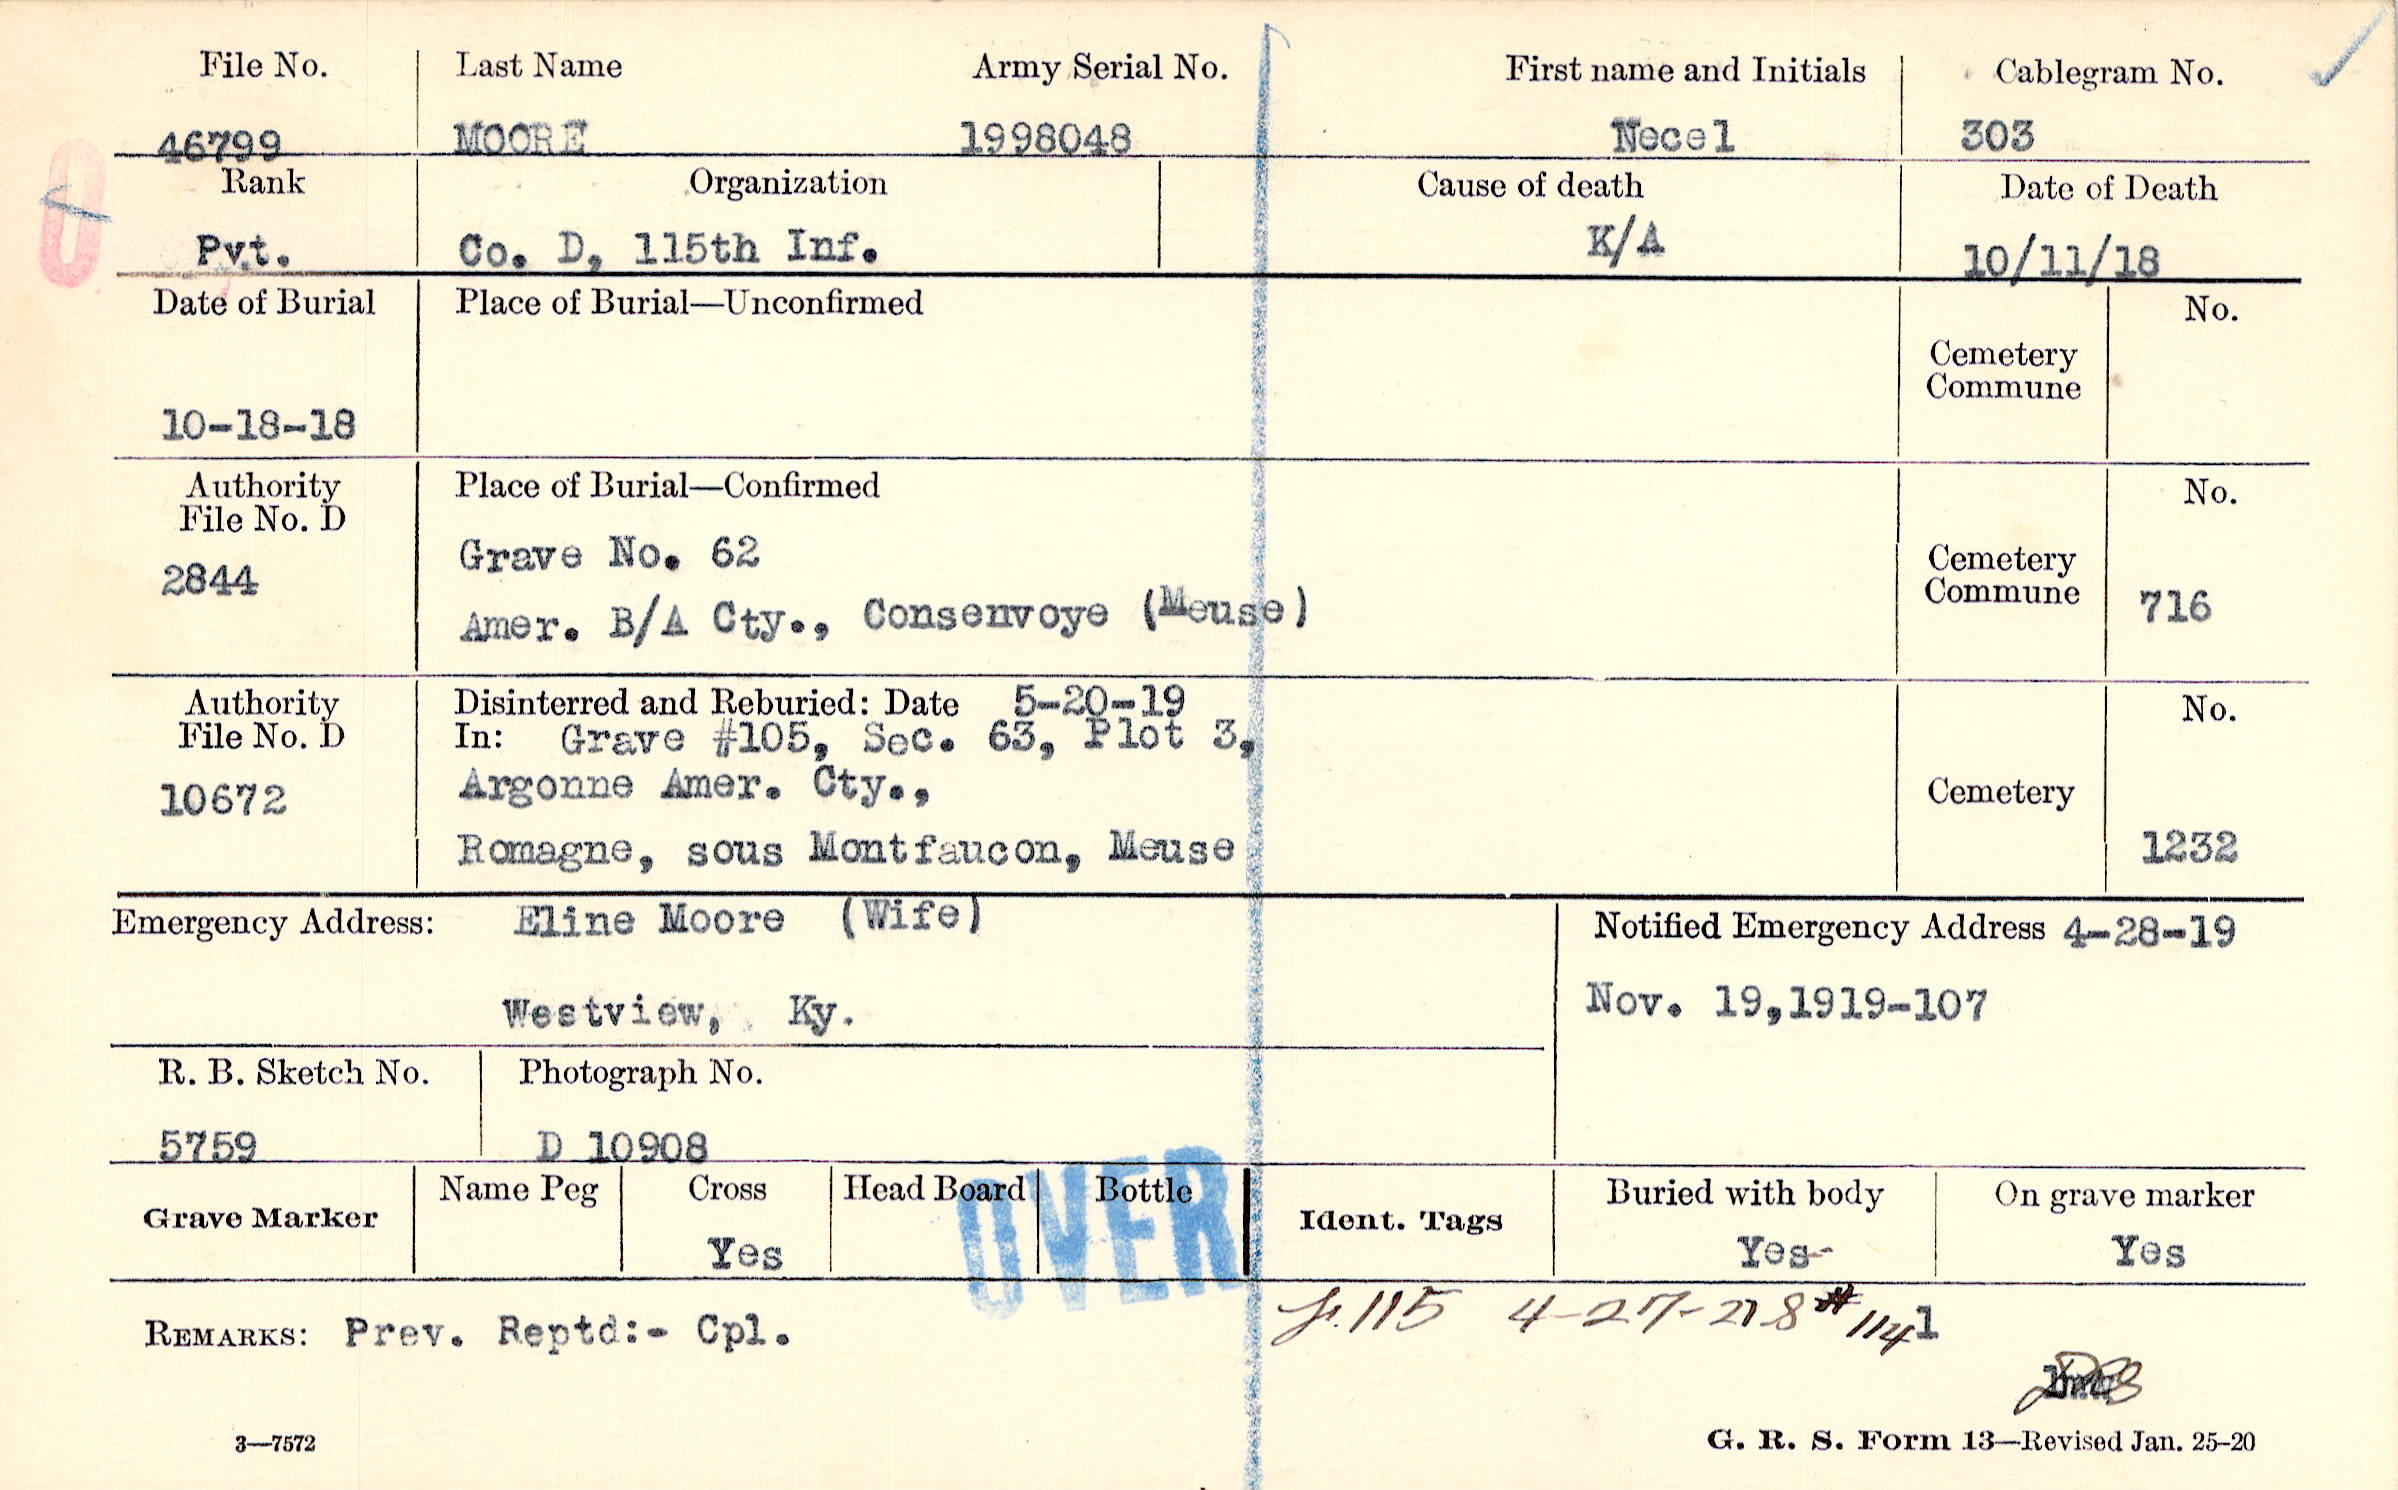 File No. Last Name Army Serial No. First name and Initials Cablegram No.
46799 MOORE 1998048 Necel 303
Rank Organization Cause of death Date of Death
Pvt. Co. D, 115th Inf. K/A 10/11/18
Date of Burial Place of Burial—Unconfirmed No.
Cemetery
Commune
10-18-18
Authority Place of Burial—Confirmed No.
File No. D
2844 Grave No. 62 Cemetery
Commune 716
Amer. B/A Cty., Consenvoye (Meuse)
Authority Disinterred and Reburied: Date 5-20-19 No.
File No. D In: Grave #105, Sec. 63, Plot 3,
10672 Argonne Amer. Cty., Cemetery
Romagne, sous Montfaucon, Meuse 1232
Emergency Address: Eline Moore (Wife) Notified Emergency Address 4-28-19
Westview, Ky. Nov. 19,1919-107
R. B. Sketch No. Photograph No.
5759 D 10908
Grave Marker Name Peg Cross Head Board Bottle Ident. Tags Buried with body On grave marker
Yes Yes- Yes
OVER
115 4-27-21 8 # 114 1
REMARKS: Prev. Reptd:- Cpl.
3—7572 G. R. S. Form 13—Revised Jan. 25-20